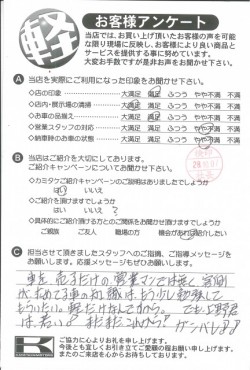 軽
お客様アンケート
当店では、お買い上げ頂いたお客様の声を可能
な限り現場に反映し、お客様により良い商品と
サービスを提供する事に努めています。
大変お手数ですが是非お声をお聞かせ下さい。
A 当店を実際にご利用になった印象をお聞かせ下さい。
◇お店の印象 大満足 満足 ふつう やや不満 不満
◇店内・展示場の清掃 大満足 満足 ふつう やや不満 不満
◇お車の品揃え 大満足 満足 ふつう やや不満 不満
◇営業スタッフの対応 大満足 満足 ふつう やや不満 不満
◇納車時のお車の状態 大満足 満足 ふつう やや不満 不満
B 当店はご紹介を大切にしております。
ご紹介キャンペーンについてお聞かせ下さい。
◇カミタケご紹介キャンペーンのご説明はありましたでしょうか
はい いいえ
◇ご紹介を頂けますでしょうか
はい いいえ ?
◇具体的にご紹介頂ける方とのご関係をお聞かせ頂けますでしょうか
ご親族 ご友人 職場の方 機会があれば紹介したい
C 担当させて頂きましたスタッフへのご指摘、ご指導メッセージを
お願いします。応援メッセージもぜひお願いします。
車を売るだけの営業マンでは無く
車の知識はもう少し勉強して
もらいたい。軽だけなんでから。
は若い。まだまだこれから!! ガンバレ
K
ご協力に心よりお礼を申し上げます。
今後とも宜しくお引き立てご愛顧の程お願い申し上げます。
またのご来店を心からお待ちしております。